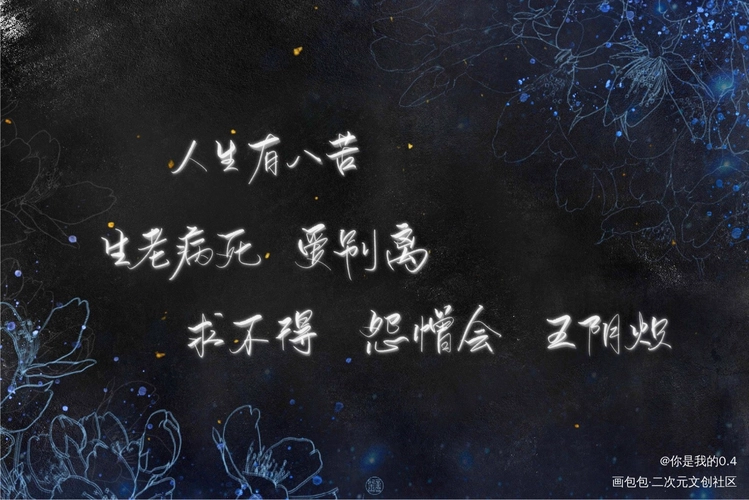 人生有八苦
生老病死 爱别离
求不得 怨憎会 五阴炽
@你是我的0.4
画包包·二次元文创社区